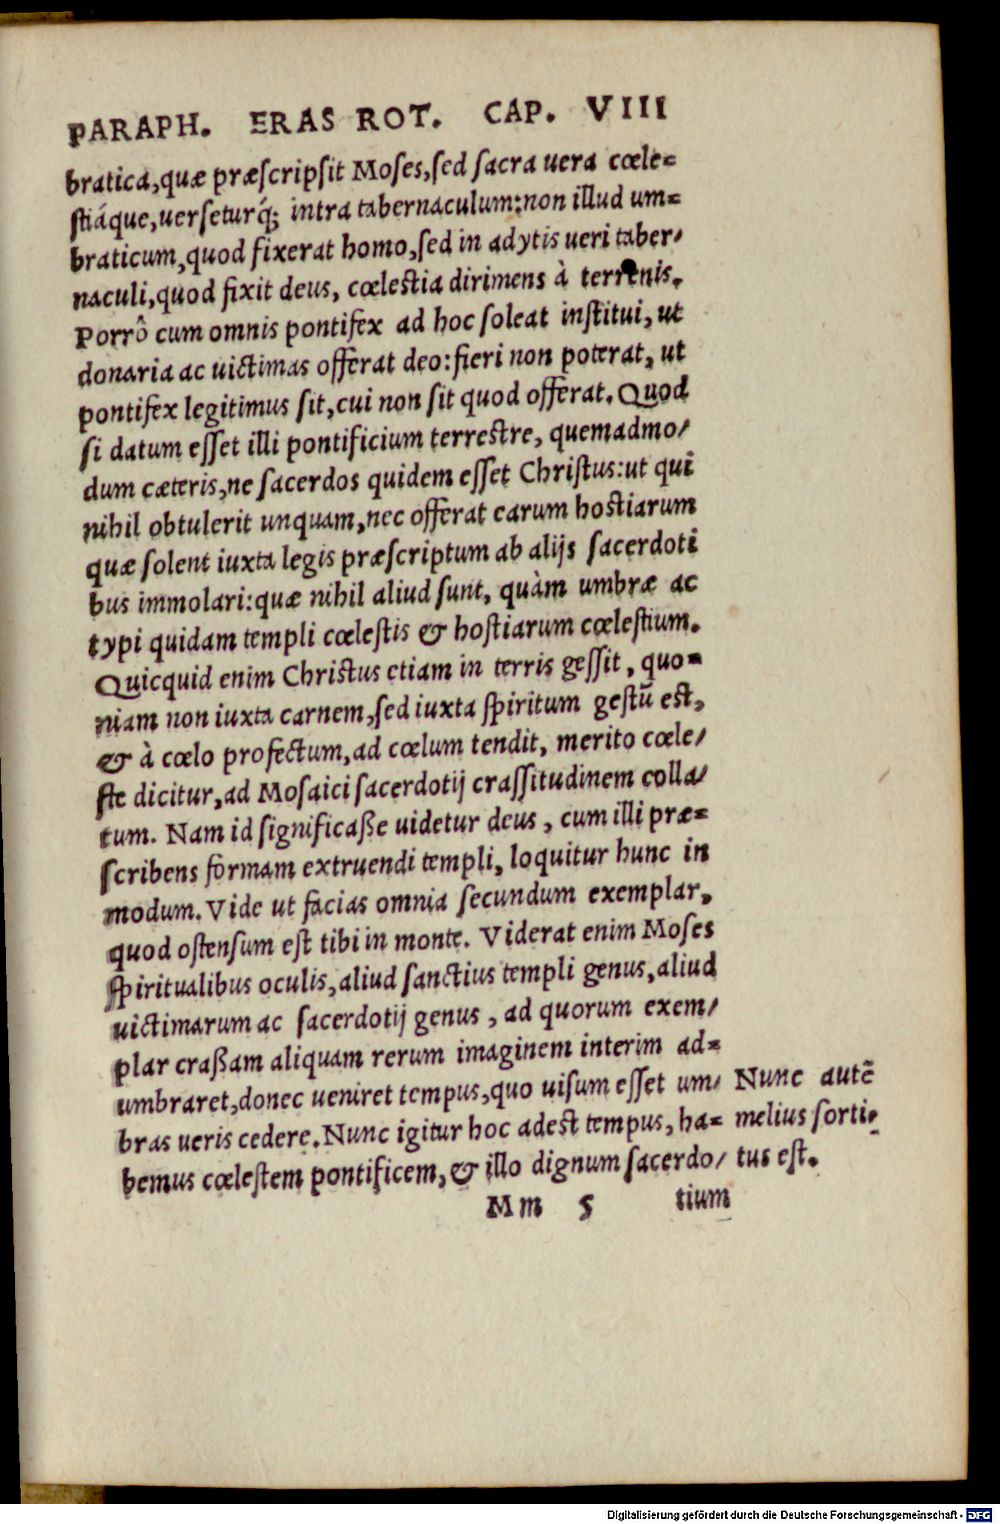 PARAPH. ERAS ROT. CAP. VIII
bratica,quæ præscripsit Moses,sed sacra uera cœle=
stiáque,uerseturq́; intra tabernaculum:non illud um=
braticum,quod fixerat homo,sed in adytis ueri taber/
naculi,quod fixit deus, cœlestia dirimens à terrenis.
Porrô cum omnis pontifex ad hoc soleat institui, ut
donaria ac uictimas offerat deo:fieri non poterat, ut
pontifex legitimus sit,cui non sit quod offerat. Quod
si datum esset illi pontificium terrestre, quemadmo/
dum cæteris,ne sacerdos quidem esset Christus:ut qui
nihil obtulerit unquam,nec offerat earum hostiarum
quæ solent iuxta legis præscriptum ab alijs sacerdoti
bus immolari:quæ nihil aliud sunt, quàm umbræ ac
typi quidam templi cœlestis & hostiarum cœlestium.
Quicquid enim Christus etiam in terris gessit, quo=
niam non iuxta carnem,sed iuxta spiritum gestũ est,
& à cœlo profectum,ad cœlum tendit, merito cœle/
ste dicitur,ad Mosaici sacerdotij crassitudinem colla/
tum. Nam id significaße uidetur deus, cum illi præ=
scribens formam extruendi templi, loquitur hunc in
modum. Vide ut facias omnia secundum exemplar,
quod ostensum est tibi in monte. Viderat enim Moses
spiritualibus oculis,aliud sanctius templi genus,aliud
uictimarum ac sacerdotij genus, ad quorum exem/
plar craßam aliquam rerum imaginem interim ad=
umbraret,donec ueniret tempus,quo uisum esset um/
bras ueris cedere.Nunc igitur hoc adest tempus, ha=
bemus cœlestem pontificem,& illo dignum sacerdo/
Nunc autē
melius sorti-
tus est.
Mm 5 tium
Digitalisierung gefördert durch die Deutsche Forschungsgemeinschaft - DFG